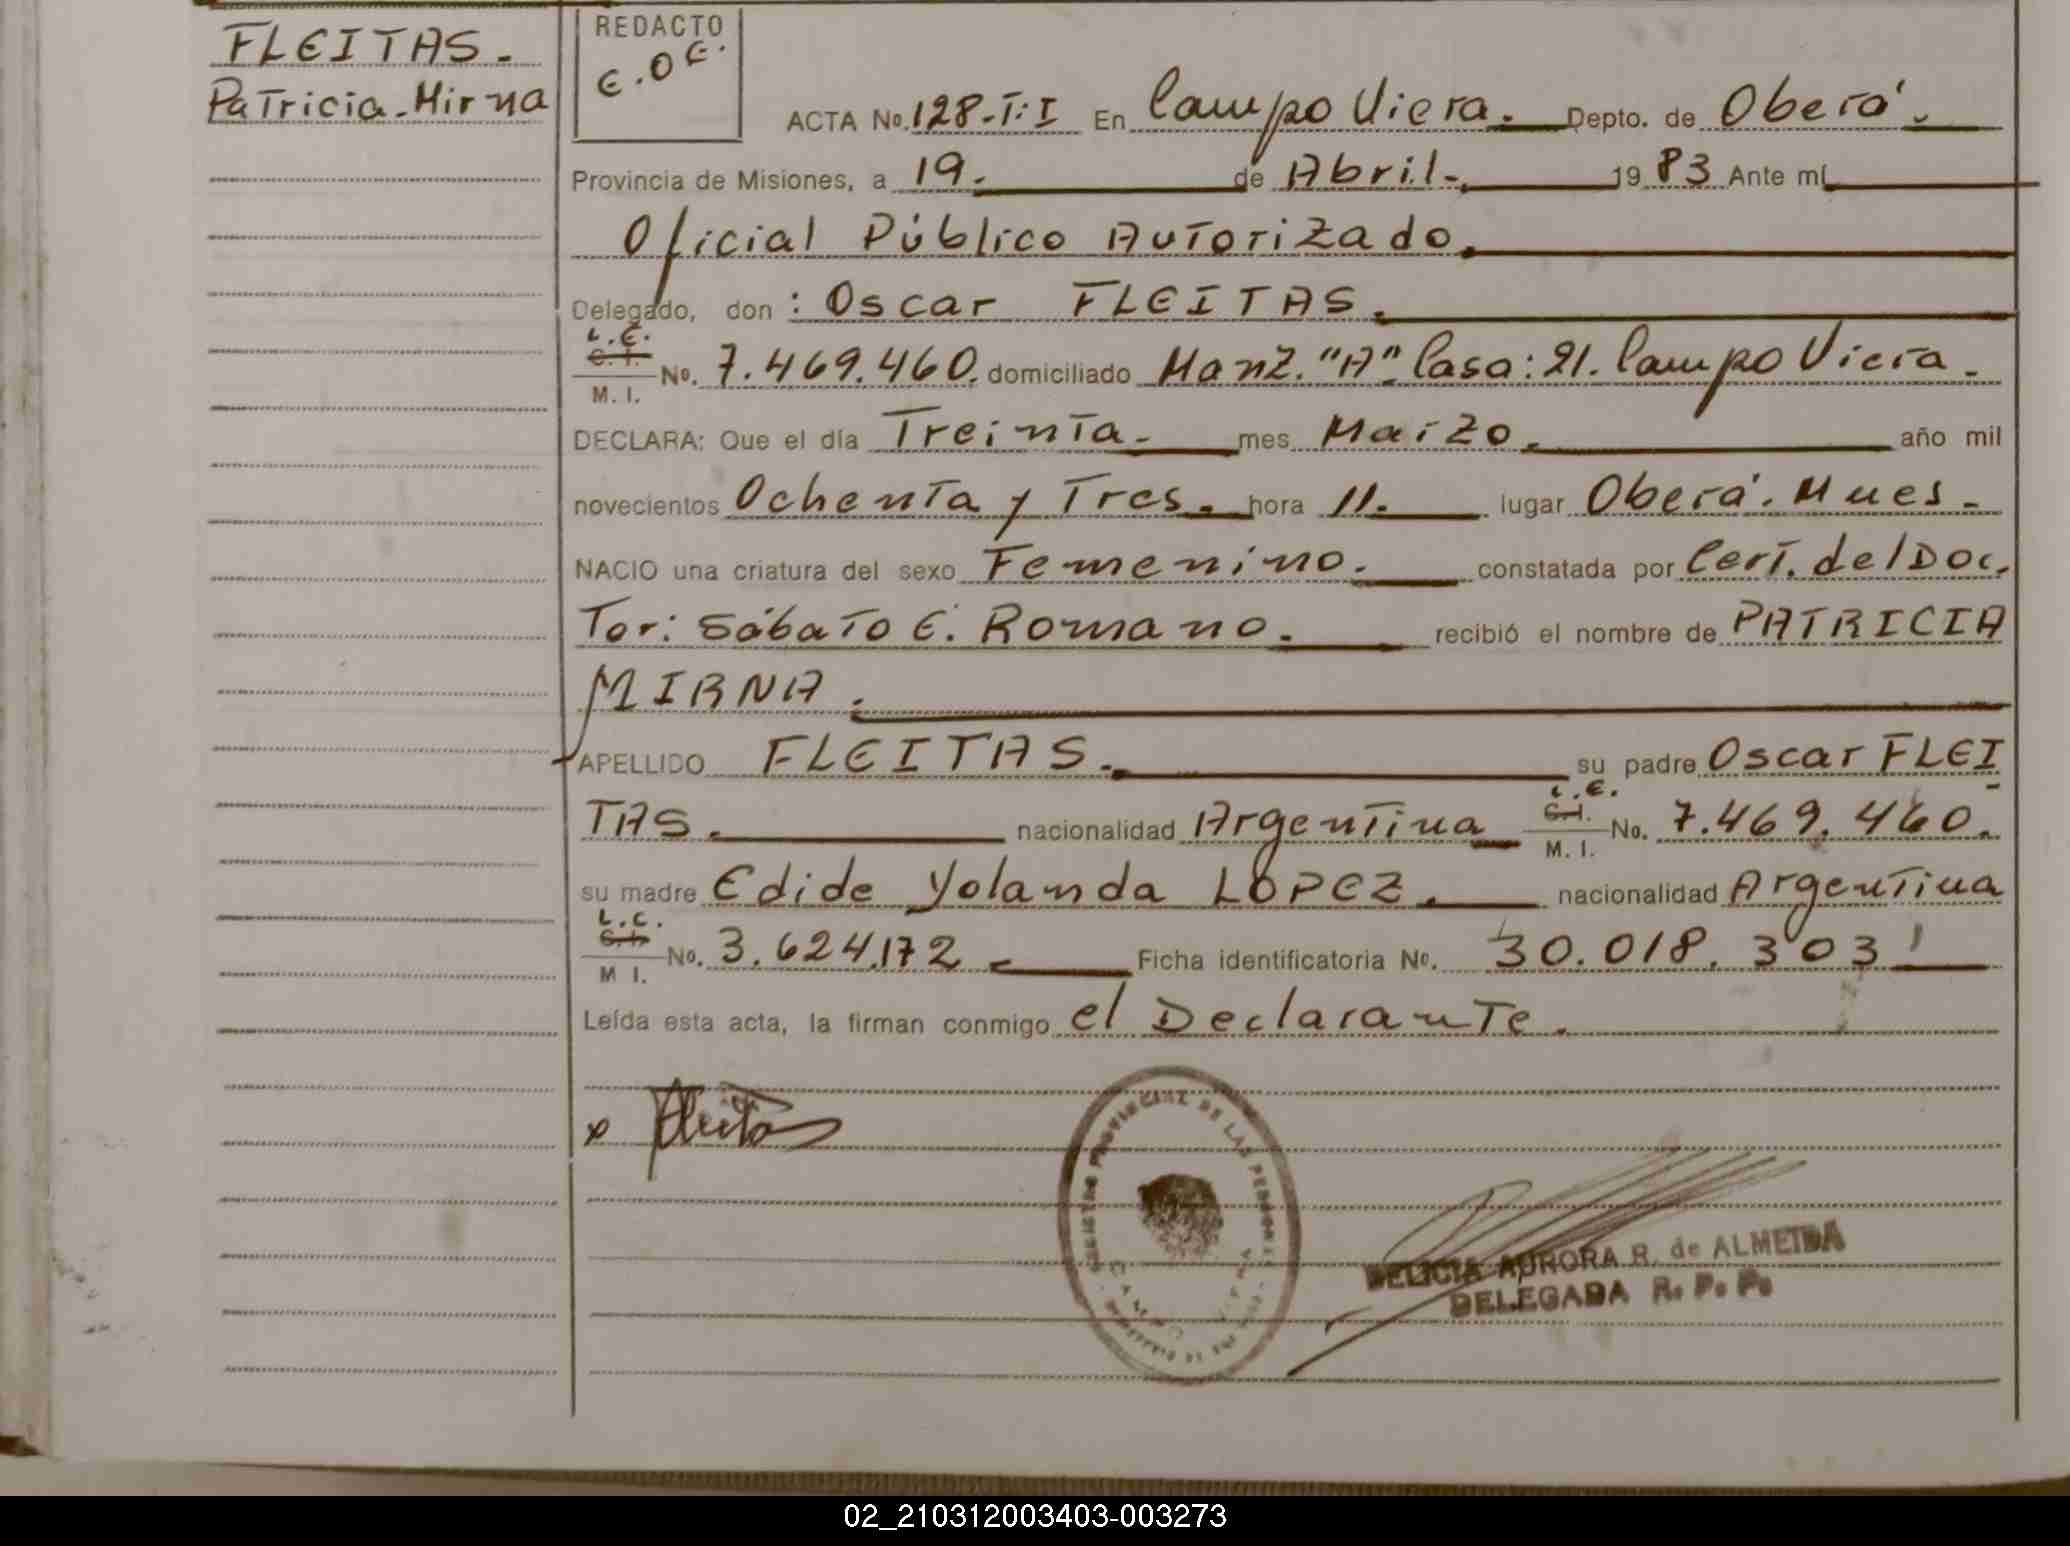 FLEITAS.
Patricia-Mirna
REDACTO
E.O.E.
ACTA No. 128-T:I En Campo Viera. Depto. de Oberá.
Provincia de Misiones, a 19. de Abril. 1983 Ante mí
Oficial Público Autorizado.
Delegado, don : Oscar FLEITAS.
L.E.
C.I.
M. I. No. 7.469.460. domiciliado Manz. "A". Casa: 21. Campo Viera.
DECLARA: Que el día Treinta. mes Marzo. año mil
novecientos Ochenta y Tres. hora 11. lugar Oberá. Mnes.
NACIO una criatura del sexo Femenino. constatada por Cert. del Doc.
Tor: Sábato E. Romano. recibió el nombre de PATRICIA
MIRNA.
APELLIDO FLEITAS. su padre Oscar FLEI
L.E.
TAS. nacionalidad Argentina C.I. M. I. No. 7.469.460.
su madre Edide Yolanda LOPEZ. nacionalidad Argentina
L.C.
C.I.
M I. No. 3.624.172 Ficha identificatoria No. 30.018.303
Leída esta acta, la firman conmigo el Declarante.
x Fleitas
REGISTRO PROVINCIAL DE LAS PERSONAS
DELICIA AURORA R. de ALMEIDA
DELEGADA R. P. P.
02_210312003403-003273